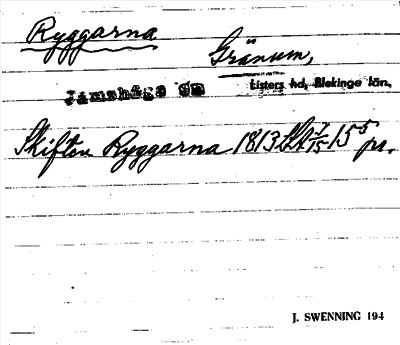 Ryggarna
Gränum,
Jämshögs sn Listers hd, Blekinge län.
Skiften Ryggarna 1813 LA 7/15 155 pr.
J. SWENNING 194